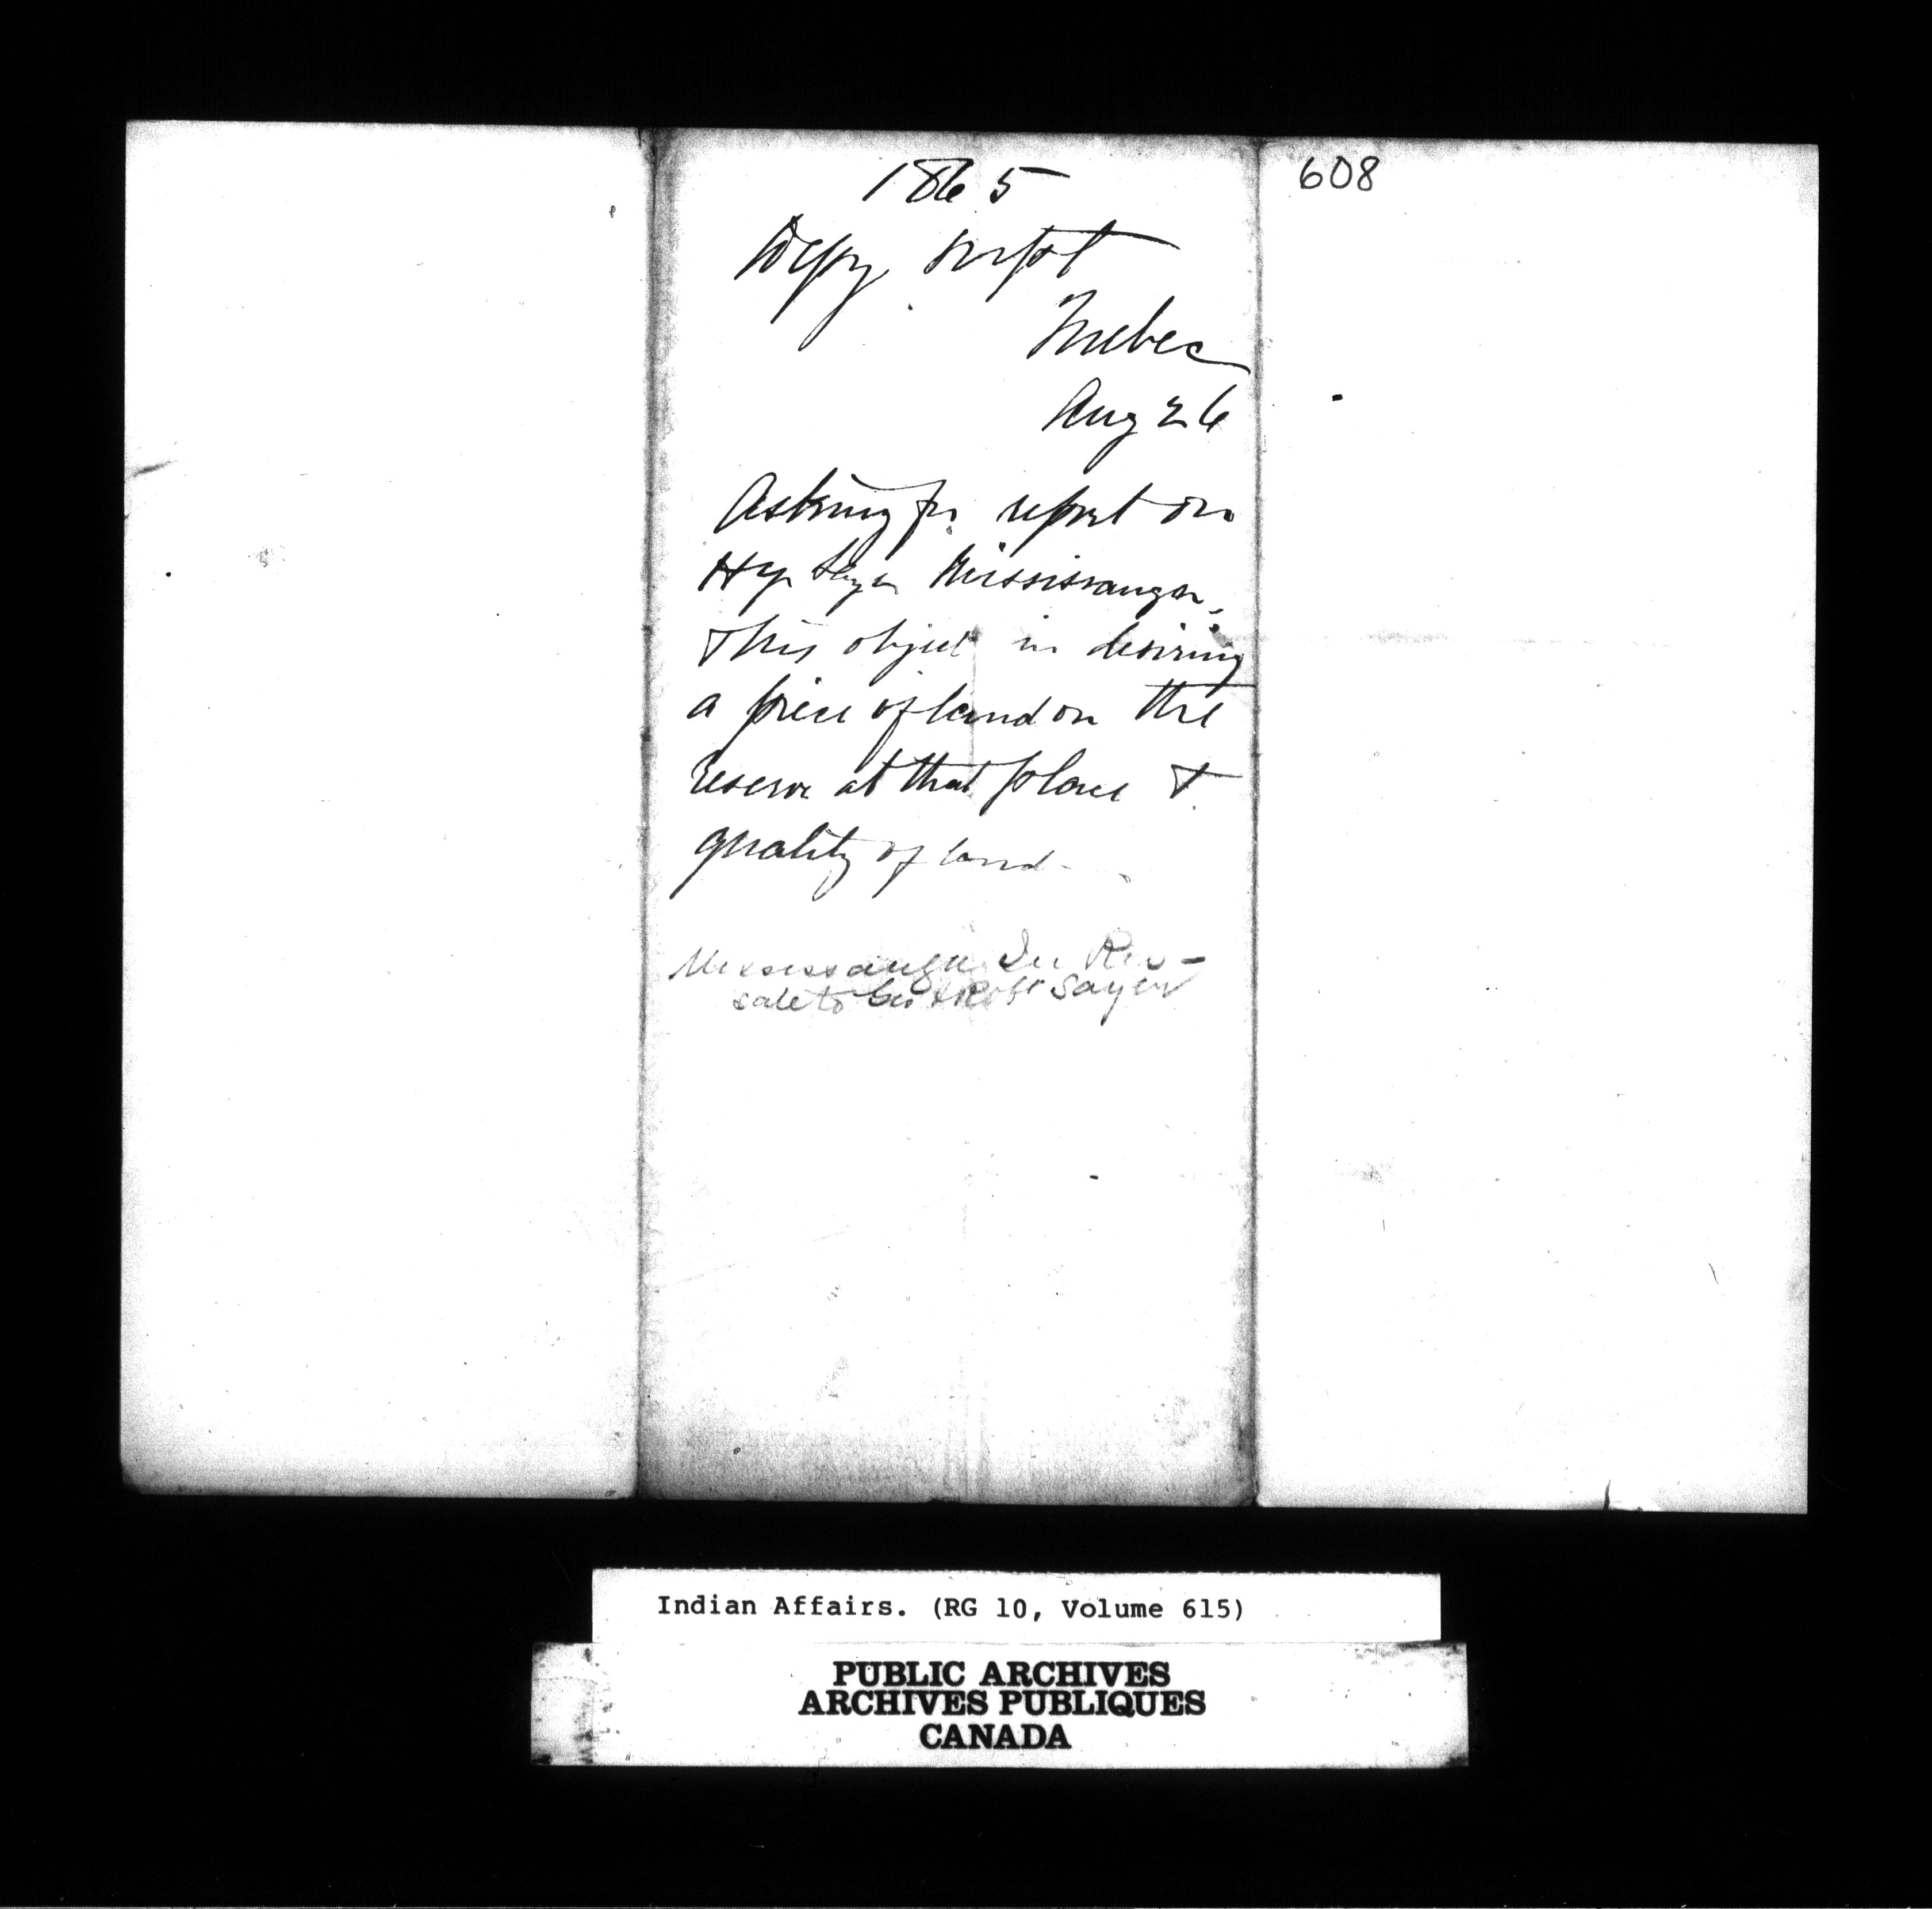 1865
Depy Supt
Quebec
Aug 26
Asking for report on
Hy Sayer Mississauga,
This object in desiring
a piece of land on the
reserve at that place &
quality of land -
Mississauga In Res -
sale to Geo & Robt Sayer
608
Indian Affairs. (RG 10, Volume 615)
PUBLIC ARCHIVES
ARCHIVES PUBLIQUES
CANADA